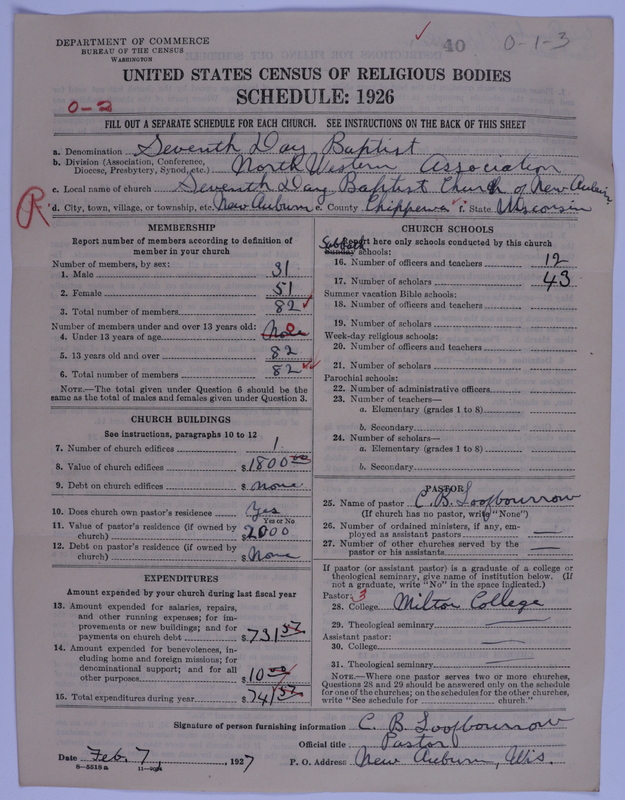 DEPARTMENT OF COMMERCE
BUREAU OF THE CENSUS
WASHINGTON
40 0-1-3
UNITED STATES CENSUS OF RELIGIOUS BODIES
SCHEDULE: 1926
0-2
FILL OUT A SEPARATE SCHEDULE FOR EACH CHURCH. SEE INSTRUCTIONS ON THE BACK OF THIS SHEET
a. Denomination Seventh Day Baptist
b. Division (Association, Conference, Diocese, Presbytery, Synod, etc.) North Western Association
c. Local name of church Seventh Day Baptist Church of New Auburn
R d. City, town, village, or township, etc. New Auburn e. County Chippewa f. State Wisconsin
MEMBERSHIP
Report number of members according to definition of
member in your church
Number of members, by sex:
1. Male 31
2. Female 51
3. Total number of members 82
Number of members under and over 13 years old:
4. Under 13 years of age None
5. 13 years old and over 82
6. Total number of members 82
NOTE.—The total given under Question 6 should be
same as the total of males and females given under Question 3.
CHURCH BUILDINGS
See instructions, paragraphs 10 to 12
7. Number of church edifices 1
8. Value of church edifices $1800 00
9. Debt on church edifices $ none
10. Does church own pastor's residence Yes
Yes or No
11. Value of pastor's residence (if owned by
church) $2000
12. Debt on pastor's residence (if owned by
church) $ None
EXPENDITURES
Amount expended by your church during last fiscal year
13. Amount expended for salaries, repairs,
and other running expenses; for im-
provements or new buildings; and for
payments on church debt $731 57
14. Amount expended for benevolences, in-
cluding home and foreign missions; for
denominational support; and for all
other purposes $10 00
15. Total expenditures during year $741 57
CHURCH SCHOOLS
Report here only schools conducted by this church
Sabbath
Sunday schools:
16. Number of officers and teachers 12
17. Number of scholars 43
Summer vacation Bible schools:
18. Number of officers and teachers
19. Number of scholars
Week-day religious schools:
20. Number of officers and teachers
21. Number of scholars
Parochial schools:
22. Number of administrative officers
23. Number of teachers—
a. Elementary (grades 1 to 8)
b. Secondary
24. Number of scholars—
a. Elementary (grades 1 to 8)
b. Secondary
PASTOR
25. Name of pastor C. B. Loofbourrow
(If church has no pastor, write "None")
26. Number of ordained ministers, if any, em-
ployed as assistant pastors
27. Number of other churches served by the
pastor or his assistants
If pastor (or assistant pastor) is a graduate of a college or
theological seminary, give name of institution below. (If
not a graduate, write "No" in the space indicated.)
Pastor: 3
28. College Milton College
29. Theological seminary
Assistant pastor:
30. College
31. Theological seminary
NOTE.—Where one pastor serves two or more churches,
Questions 28 and 29 should be answered only on the schedule
for one of the churches; on the schedules for the other churches,
write "See schedule for church."
Signature of person furnishing information C. B. Loofbourrow
Official title Pastor
Date Feb. 7, 1927 P. O. Address New Auburn, Wis.
8—5518 a